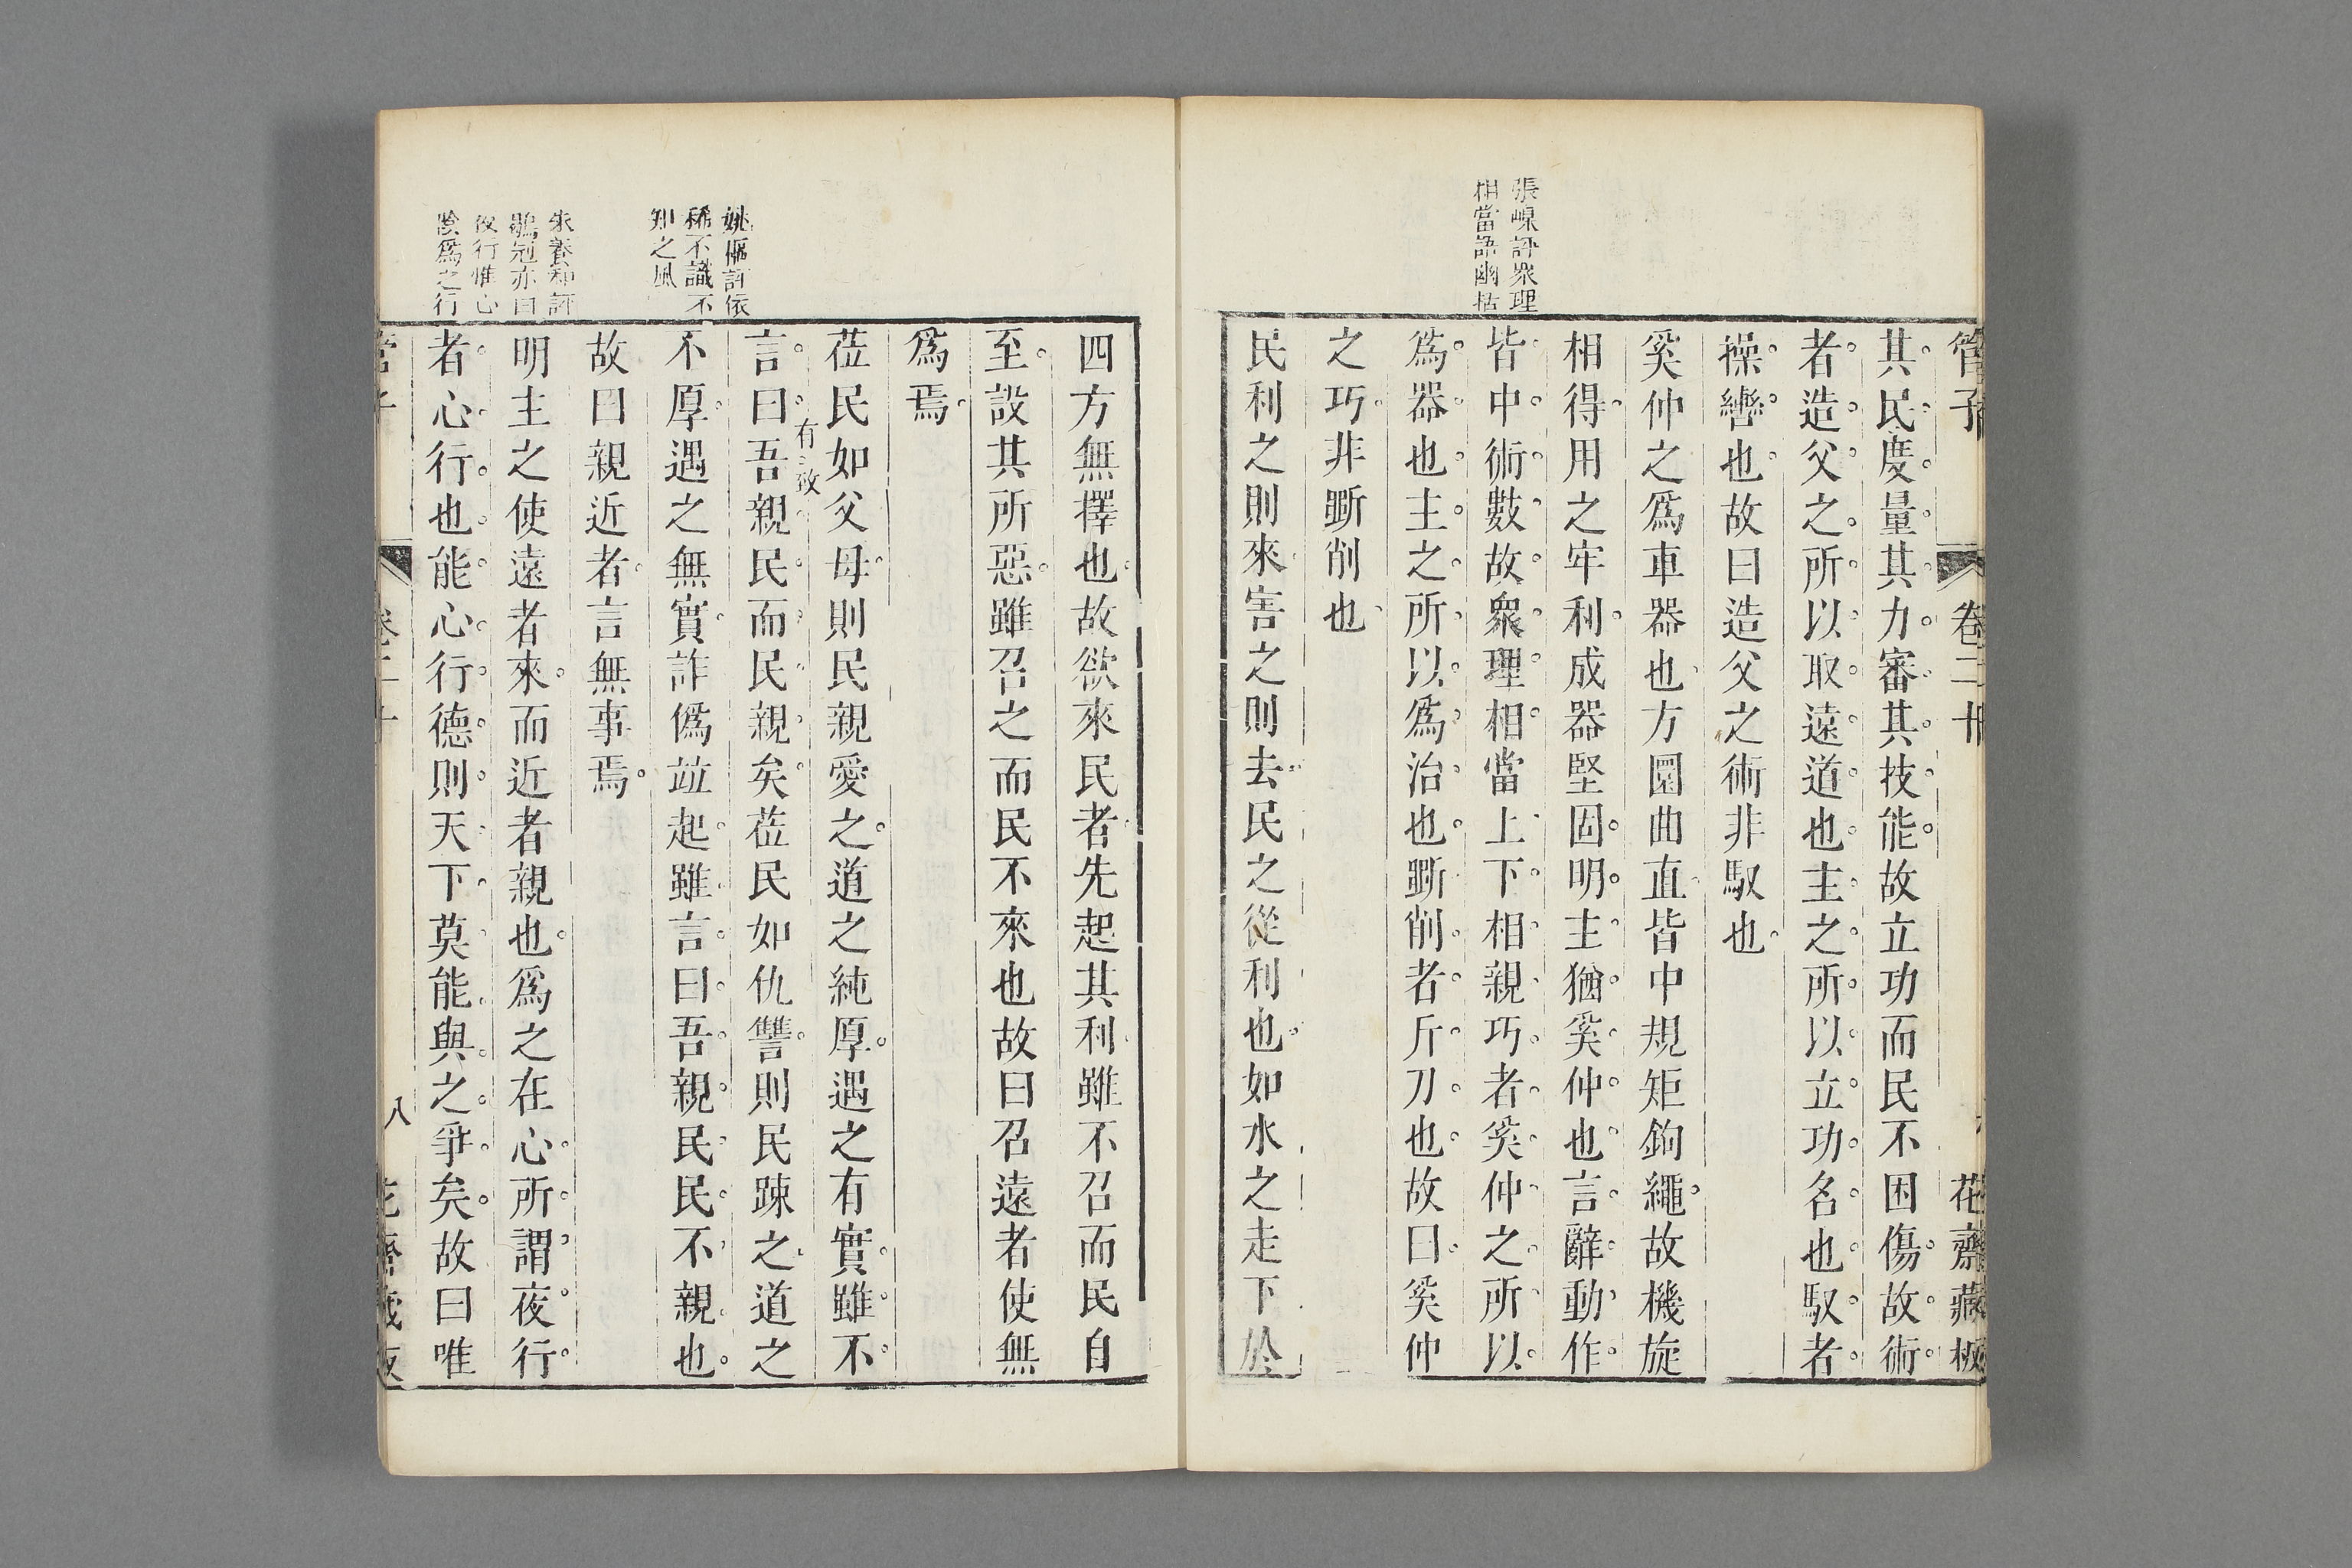 管子
卷二十
花齋藏板
張嵲評衆理
相當語幽括
其民度量其力審其技能故立功而民不困傷故術
者造父之所以取遠道也主之所以立功名也馭者
操轡也故曰造父之術非馭也
奚仲之爲車器也方圜曲直皆中規矩鉤繩故機旋
相得用之牢利成器堅固明主猶奚仲也言辭動作
皆中術數故衆理相當上下相親巧者奚仲之所以
爲器也主之所以爲治也斲削者斤刀也故曰奚仲
之巧非斲削也
民利之則來害之則去民之從利也如水之走下於
姚樞評依
稀不識不
知之風
朱養和評
鶡冠亦曰
夜行惟心
陰爲之行
四方無擇也故欲來民者先起其利雖不召而民自
至設其所惡雖召之而民不來也故曰召遠者使無
爲焉
莅民如父母則民親愛之道之純厚遇之有實雖不
有致
言曰吾親民而民親矣莅民如仇讐則民踈之道之
不厚遇之無實詐僞竝起雖言曰吾親民民不親也
故曰親近者言無事焉
明主之使遠者來而近者親也爲之在心所謂夜行
者心行也能心行德則天下莫能與之爭矣故曰唯
管子
卷二十
八
花齋藏板